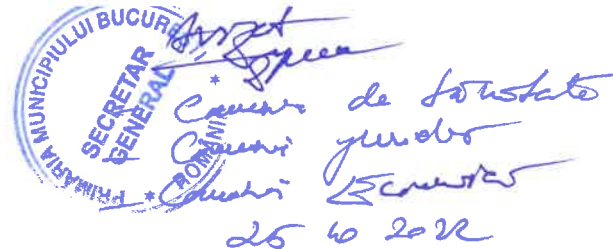 PRIMĂRIA MUNICIPIULUI BUCUREȘTI * ROMÂNIA *
SECRETAR
GENERAL
Comisia de Sănătate
Comisia juridică
Comisia Economică
26 10 2022